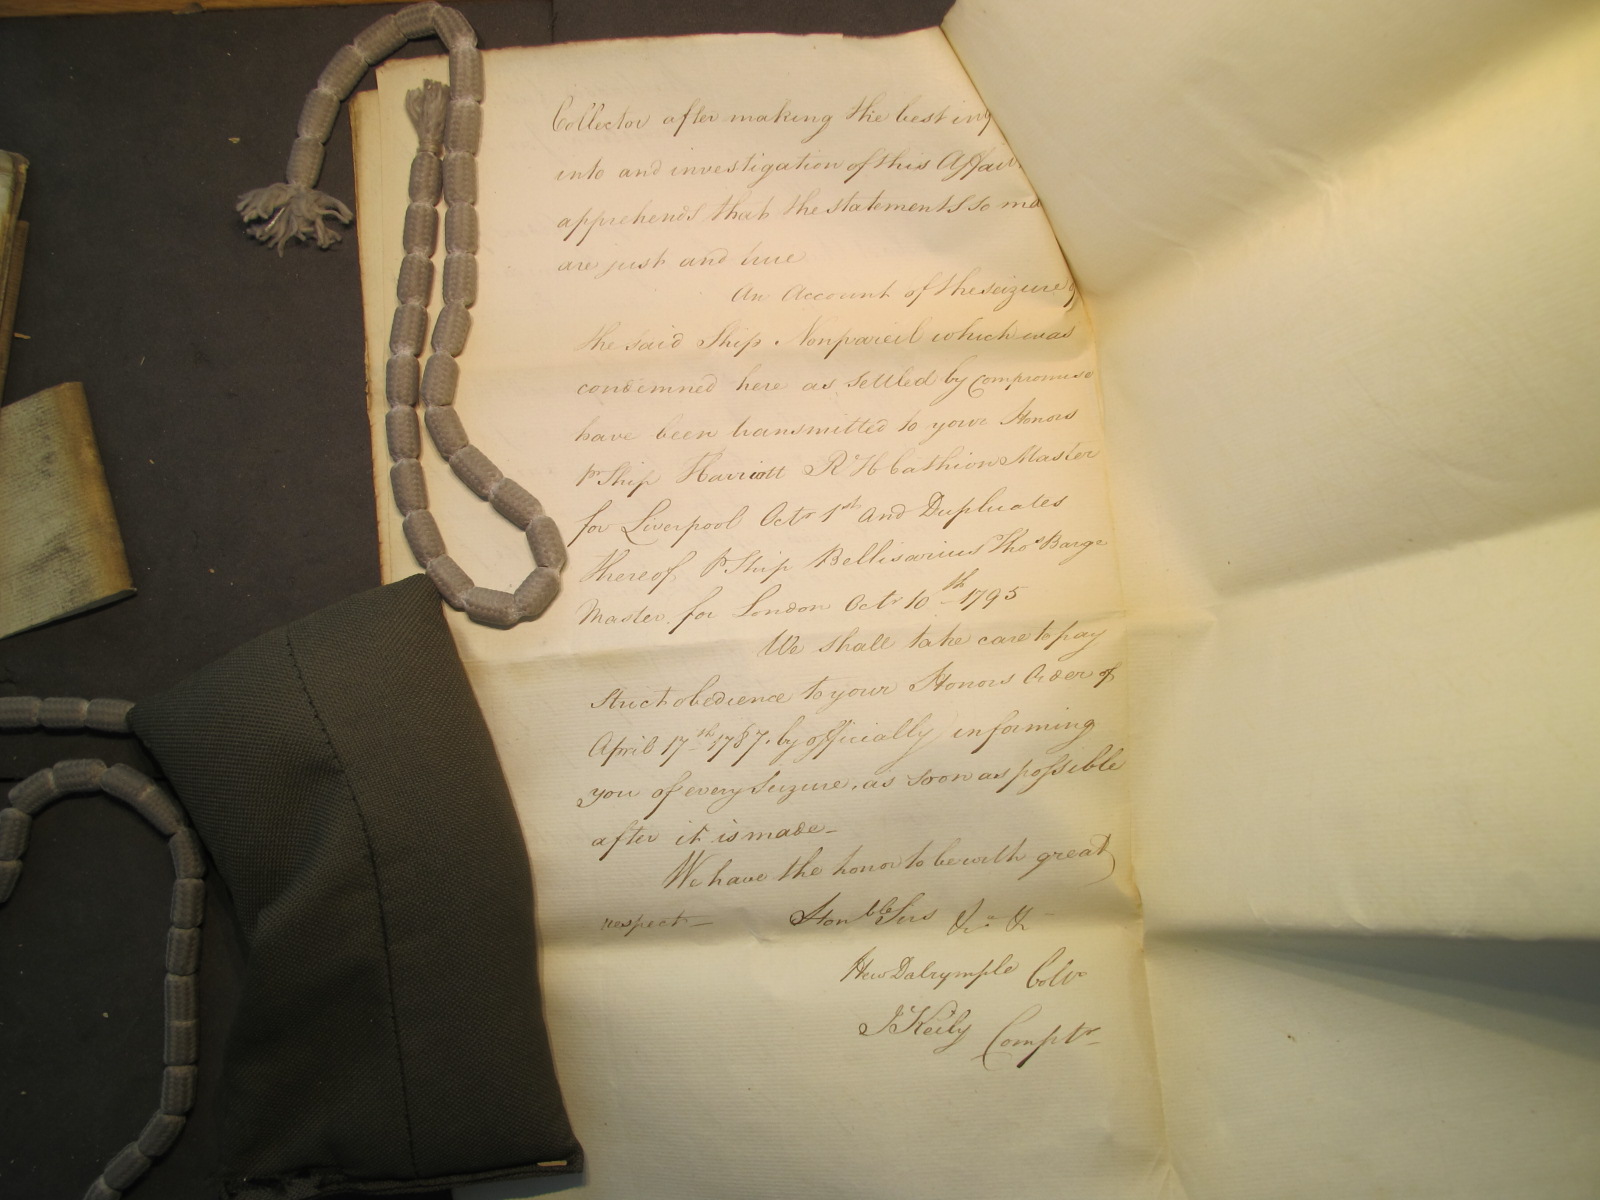 Collector after making the best inq
into and investigation of this Affair
apprehends that the statements so ma
are just and true
An Account of the seizure of
the said Ship Nonpareil which was
condemned here as settled by compromise
have been transmitted to your Honors
Pr Ship Harriott R H Cathion Master
for Liverpool Octr 1st and Duplicates
thereof Pr Ship Bellisarius Thos Barge
Master for London Octr 10th 1795
We shall take care to pay
strict obedience to your Honors Order of
April 17th 1787. by officially informing
you of every Seizure, as soon as possible
after it is made_
We have the honor to be with great
respect_ Honble Sirs &c &c
Hew Dalrymple Collr
J Keily Comptr